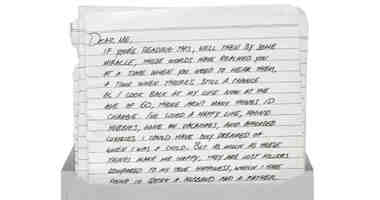 DEAR ME,
IF YOU'RE READING THIS, WELL THEN BY SOME
MIRACLE, THESE WORDS HAVE REACHED YOU
AT A TIME WHEN YOU NEED TO HEAR THEM,
A TIME WHEN THERE'S STILL A CHANCE
AS I LOOK BACK AT MY LIFE NOW AT THE
AGE OF 60, THERE AREN'T MANY THINGS I'D
CHANGE. I'VE LIVED A HAPPY LIFE, FOUND
HOBBIES, GONE ON VACATIONS, AND AFFORDED
LUXURIES I COULD HAVE ONLY DREAMED OF
WHEN I WAS A CHILD. BUT AS MUCH AS THESE
THINGS MAKE ME HAPPY, THEY ARE JUST FILLERS
COMPARED TO MY TRUE HAPPINESS, WHICH I HAVE
FOUND IN BEING A HUSBAND AND A FATHER.